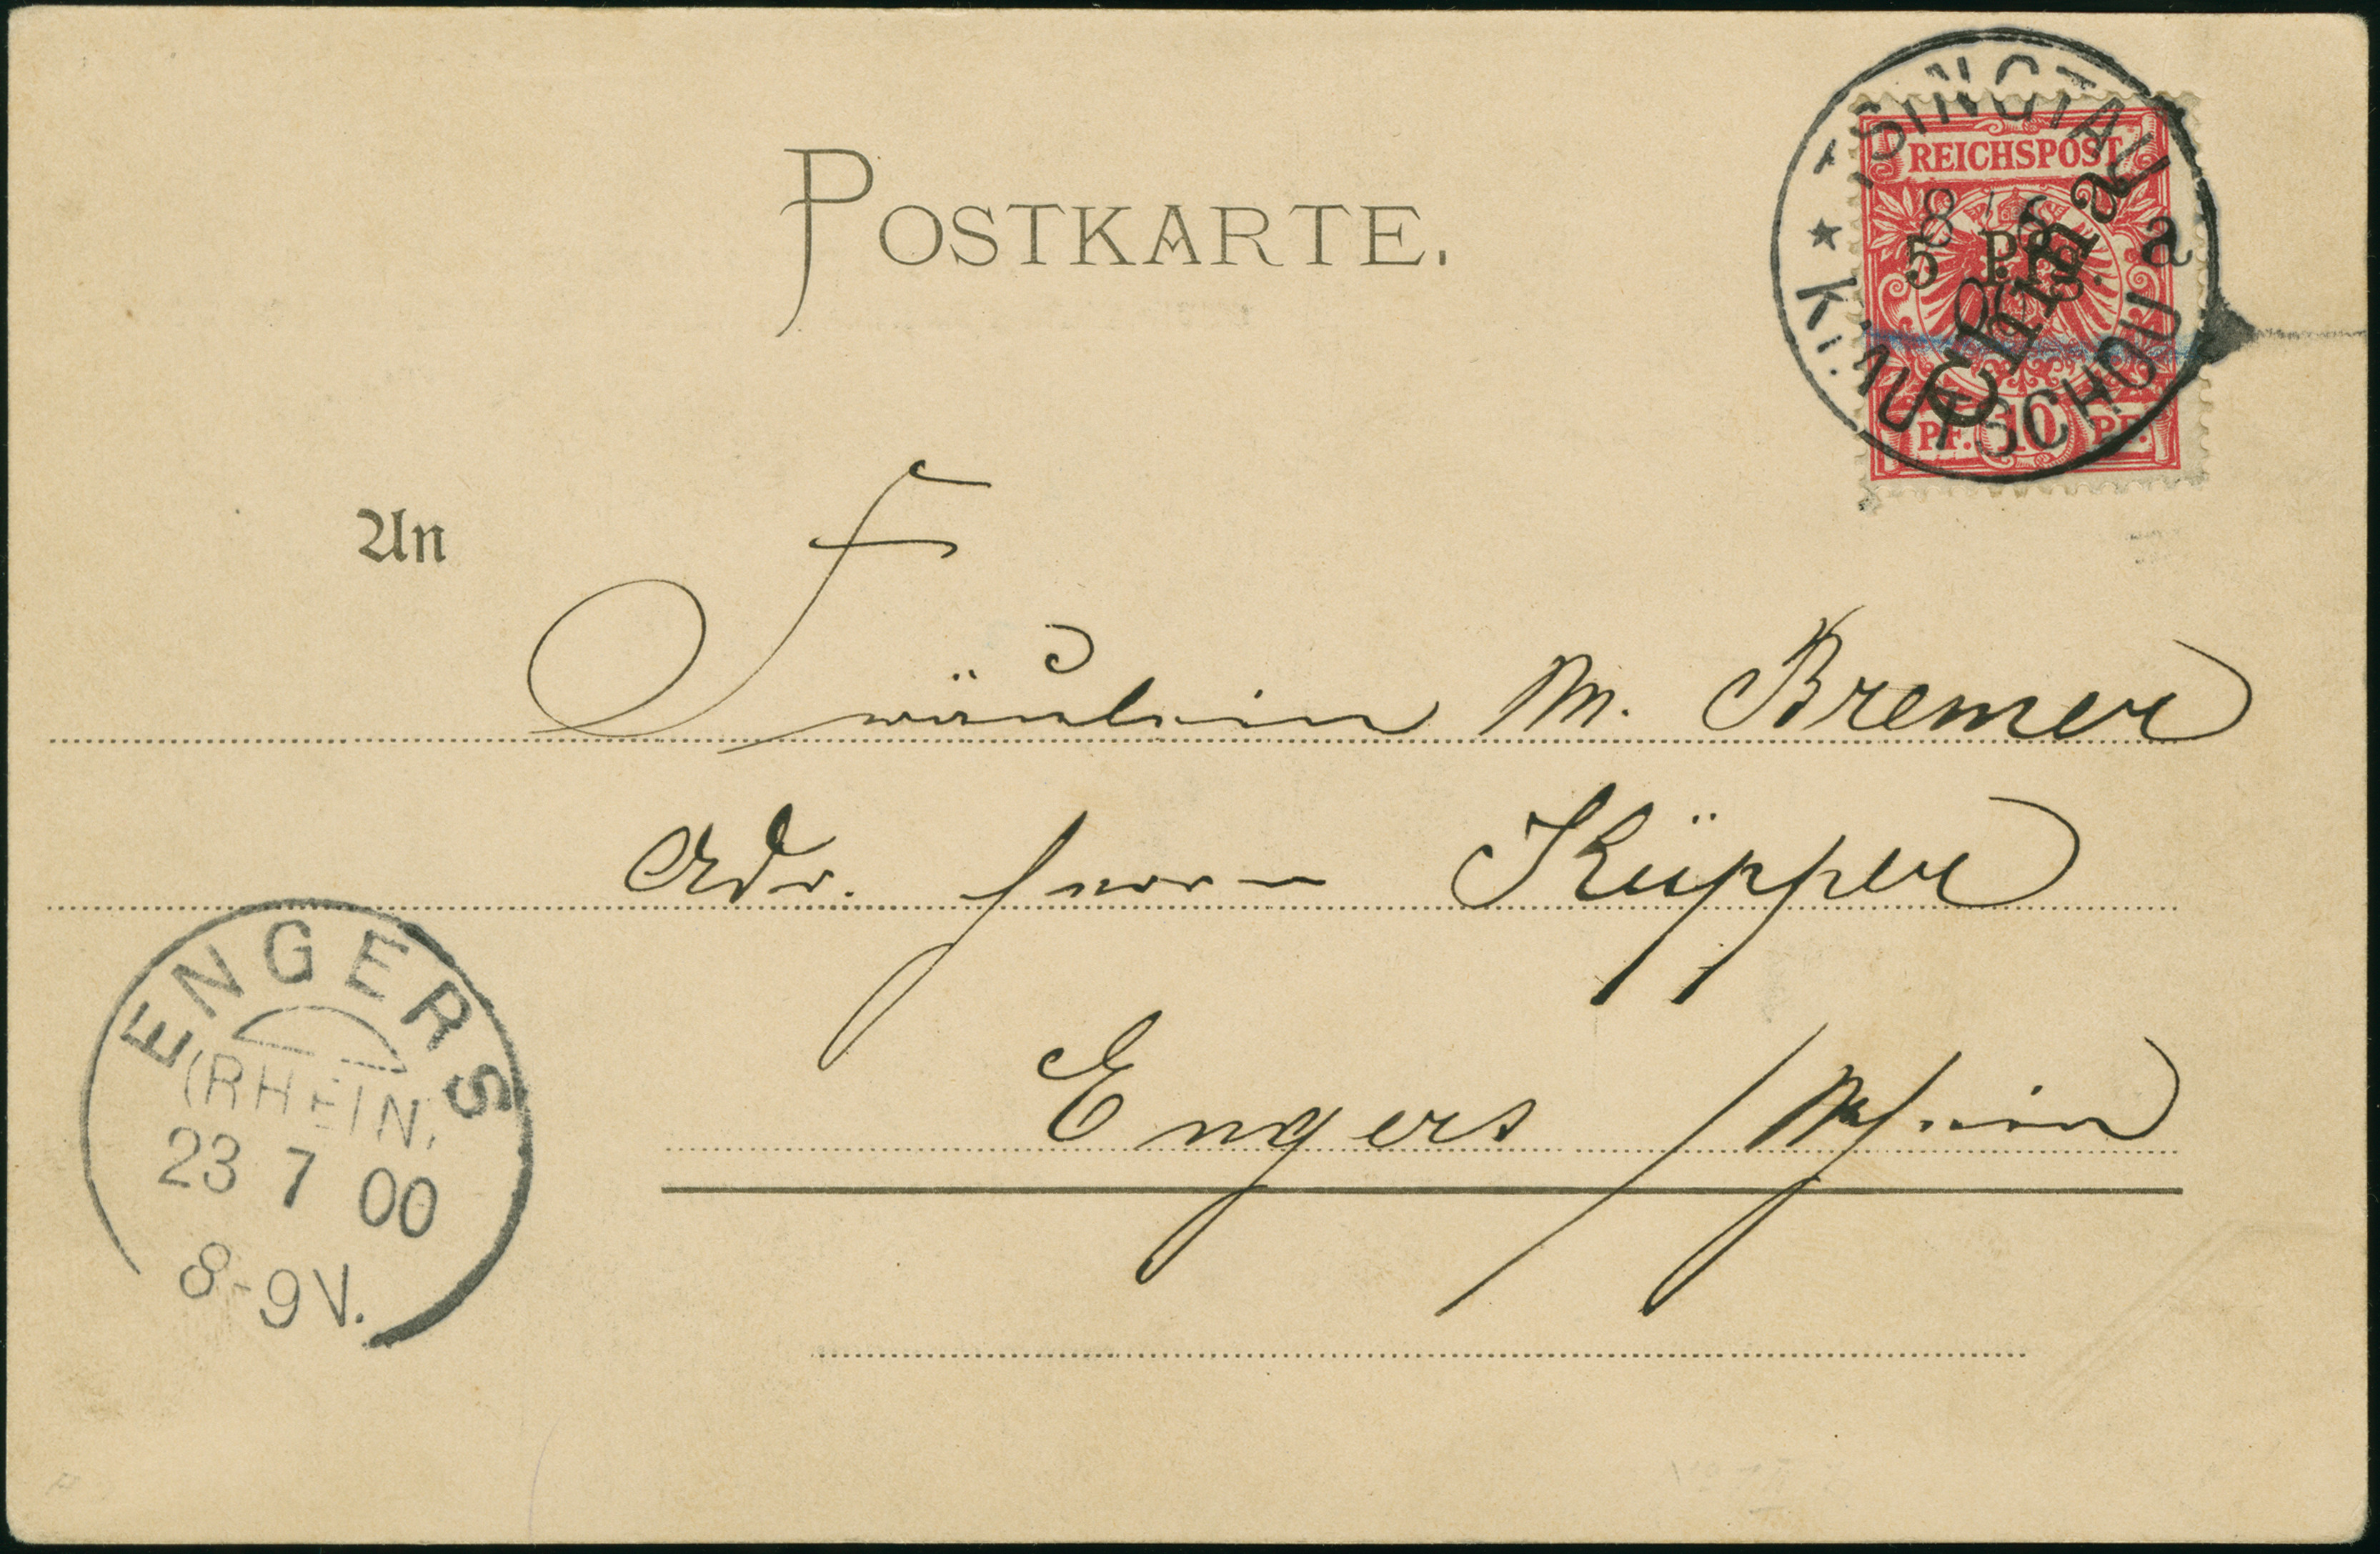 POSTKARTE.
TSINGTAU
REICHSPOST
8/6
5 Pf.
a
China
00
KIAUTSCHOU
PF. 10 PF.
An
Fräulein M. Bremer
Adr. Herrn Küpper
Engers / Rhein
ENGERS
(RHEIN)
23 7 00
8-9V.